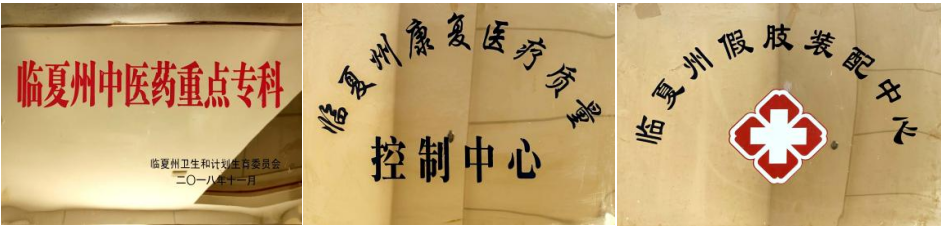 临夏州中医药重点专科
临夏州卫生和计划生育委员会
二〇一八年十一月
临夏州康复医疗质量
控制中心
临夏州假肢装配中心